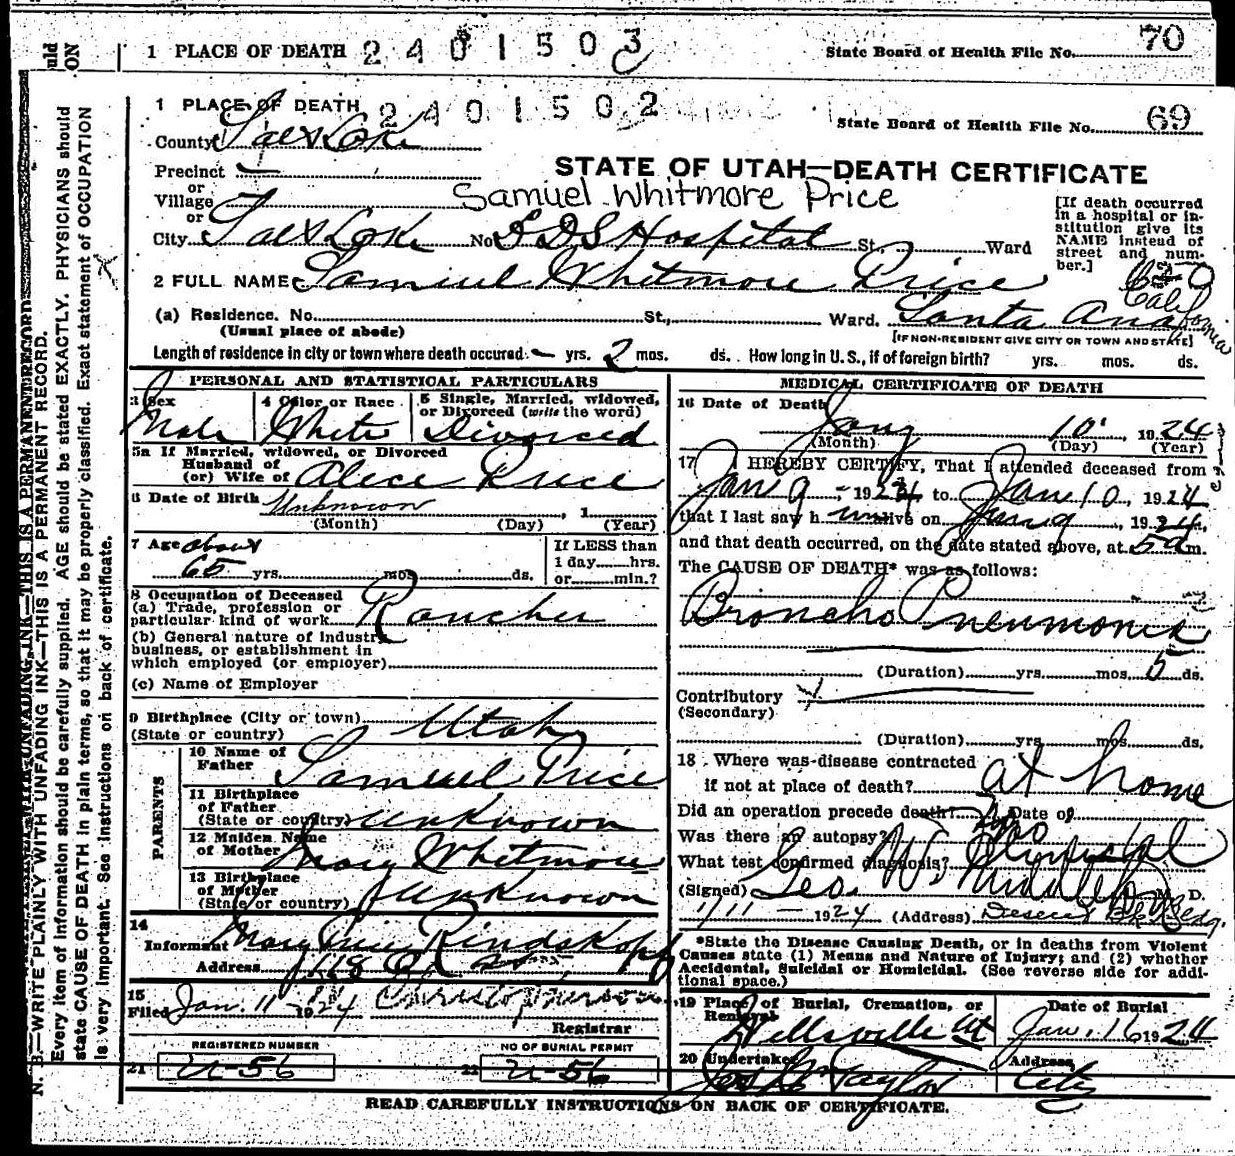 1 PLACE OF DEATH 2401503 State Board of Health File No. 70
1 PLACE OF DEATH 2401502 State Board of Health File No. 69
County Salt Lake
Precinct
STATE OF UTAH—DEATH CERTIFICATE
or
Village
Samuel Whitmore Price
or
City Salt Lake No LDS Hospital St. Ward
[If death occurred
in a hospital or in-
stitution give its
NAME instead of
street and num-
ber.]
2 FULL NAME Samuel Whitmore Price
(a) Residence. No. St., Ward. Santa Ana California
(Usual place of abode)
[IF NON-RESIDENT GIVE CITY OR TOWN AND STATE]
Length of residence in city or town where death occured — yrs. 2 mos. ds. How long in U. S., if of foreign birth? yrs. mos. ds.
PERSONAL AND STATISTICAL PARTICULARS
3 Sex 4 Color or Race 5 Single, Married, widowed,
or Divorced (write the word)
Male White Divorced
5a If Married, widowed, or Divorced
Husband of
(or) Wife of Alice Price
6 Date of Birth Unknown, 1
(Month) (Day) (Year)
7 Age about
65 yrs. mos. ds.
If LESS than
1 day hrs.
or min.?
8 Occupation of Deceased
(a) Trade, profession or
particular kind of work Rancher
(b) General nature of Industry
business, or establishment in
which employed (or employer)
(c) Name of Employer
9 Birthplace (City or town)
(State or country) Utah
PARENTS
10 Name of
Father Samuel Price
11 Birthplace
of Father
(State or country) unknown
12 Maiden Name
of Mother Mary Whitmore
13 Birthplace
of Mother
(State or country) unknown
14
Informant Mary Price Rindskopf
Address
15
Filed Jan. 11-1924
Registrar
REGISTERED NUMBER NO OF BURIAL PERMIT
21 U-56 22 U-56
MEDICAL CERTIFICATE OF DEATH
16 Date of Death
Jany 10 1924
(Month) (Day) (Year)
17 I HEREBY CERTIFY, That I attended deceased from
Jan 9, 1924 to Jan 10, 1924
that I last saw h im alive on Jan 9, 1924,
and that death occurred, on the date stated above, at 5 a m.
The CAUSE OF DEATH* was as follows:
Broncho Pneumonia
(Duration) yrs mos 5 ds.
Contributory
(Secondary)
(Duration) yrs mos ds.
18 Where was disease contracted
if not at place of death? at home
Did an operation precede death? Date of
Was there an autopsy? no
What test confirmed diagnosis?
(Signed) Geo. W. Middleton M. D.
1/11 — 1924 (Address) Deseret Bk Bldg.
*State the Disease Causing Death, or in deaths from Violent
Causes state (1) Means and Nature of Injury; and (2) whether
Accidental, Suicidal or Homicidal. (See reverse side for addi-
tional space.)
19 Place of Burial, Cremation, or
Removal
Date of Burial
Wellsville Ut Jan. 16 1924
20 Undertaker Address
Taylor City
READ CAREFULLY INSTRUCTIONS ON BACK OF CERTIFICATE.
N. B.—WRITE PLAINLY WITH UNFADING INK—THIS IS A PERMANENT RECORD.
Every item of information should be carefully supplied. AGE should be stated EXACTLY. PHYSICIANS should
state CAUSE OF DEATH in plain terms, so that it may be properly classified. Exact statement of OCCUPATION
is very important. See instructions on back of certificate.